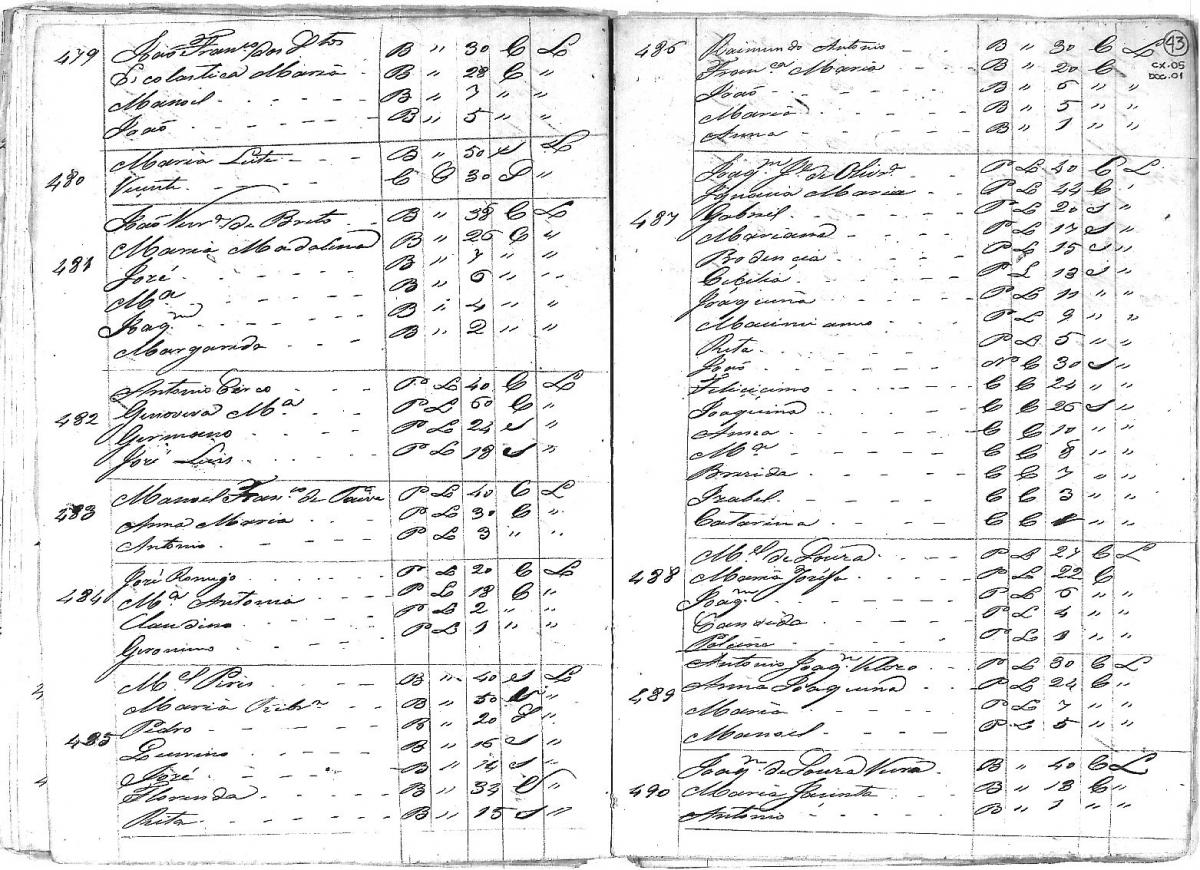 479 João Franco dos Stos B " 30 C L
Escolastica Maria B " 28 C "
Manoel B " 7 " "
João B " 5 " "
480 Maria Leite B " 50 S L
Vicente C C 30 S "
481 João de Brito B " 38 C L
Maria Madalena B " 26 C "
José B " 7 " "
Ma B " 6 " "
Joaqm B " 4 " "
Margarida B " 2 " "
482 Antonio P L 40 C L
Genoveva Ma P L 50 C "
Germano P L 24 S "
José Luis P L 18 S "
483 Manoel Franco de Paiva P L 40 C L
Anna Maria P L 30 C "
Antonio P L 3 " "
484 José P L 20 C L
Ma Antonia P L 18 C "
Claudino P L 2 " "
Geronimo P L 1 " "
485 Mel Piris B " 40 L
Maria B " 50 "
Pedro B " 20 S "
B " 16 S "
José B " 14 S "
Florinda B " 33 "
Rita B " 15 S "
43
CX.05
DOC.01
486 Raimundo Antonio B " 30 C L
Franca Maria B " 20 C
João B " 6 " "
Maria B " 5 " "
Anna B " 1 " "
487 Joaqm de Olivra P L 40 C L
Ignacia Maria P L 44 C "
Gabriel P L 20 S "
Mariana P L 17 S "
P L 15 S "
Cicilia P L 13 S "
Joaquina P L 11 " "
P L 9 " "
Rita P L 5 "
João N C 30 S "
Felicicimo C C 24 " "
Joaquina C C 26 S "
Anna C C 10 " "
Ma C C 8 " "
Brizida C C 7 " "
Izabel C C 3 " "
Catarina C C 1 " "
488 Mel de Loura P L 27 C L
Maria Jozefa P L 22 C
Joaqm P L 6 " "
Candida P L 4 " "
P L 1 " "
489 Antonio Joaqm Velozo P L 30 C L
Anna Joaquina P L 24 C "
Maria P L 7 " "
Manoel P L 5 " "
490 Joaqm de Loura B " 40 C L
Maria Jacinta B " 18 C "
Antonio B " 1 " "